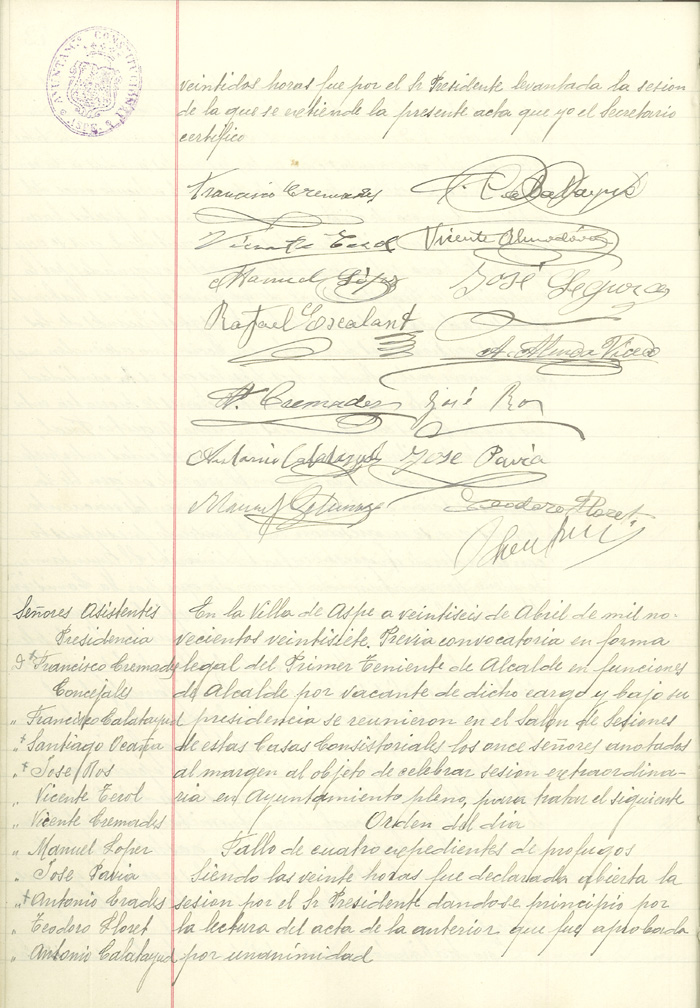 AYUNTAMTO CONSTITUCIONAL ASPE
veintidos horas fue por el Sr Presidente levantada la sesion
de la que se extiende la presente acta que yo el Secretario
certifico
Francisco Cremades F. Calatayud
Vicente Terol Vicente Almodóvar
Manuel López José Segura
Rafael Escalant
A. Almoda Vicedo
Vte. Cremades José Ros
Antonio Calatayud Jose Pavia
Manuel Teodoro Floret
Señores Asistentes
Presidencia
Dn Francisco Cremades
Concejales
" Francisco Calatayud
" Santiago Ocaña
" Jose Ros
" Vicente Terol
" Vicente Cremades
" Manuel Loper
" Jose Pavia
" Antonio Erades
" Teodoro Floret
" Antonio Calatayud
En la Villa de Aspe a veintiseis de Abril de mil no-
vecientos veintisiete, Previa convocatoria en forma
legal del Primer Teniente de Alcalde en funciones
de Alcalde por vacante de dicho cargo y bajo su
presidencia se reunieron en el Salon de Sesiones
de estas Casas Consistoriales los once señores anotados
al margen al objeto de celebrar sesion extraordina-
ria en Ayuntamiento pleno, para tratar el siguiente
Orden del dia
Fallo de cuatro expedientes de profugos
Siendo las veinte horas fue declarada abierta la
sesion por el Sr Presidente dandose principio por
la lectura del acta de la anterior que fue aprobada
por unanimidad